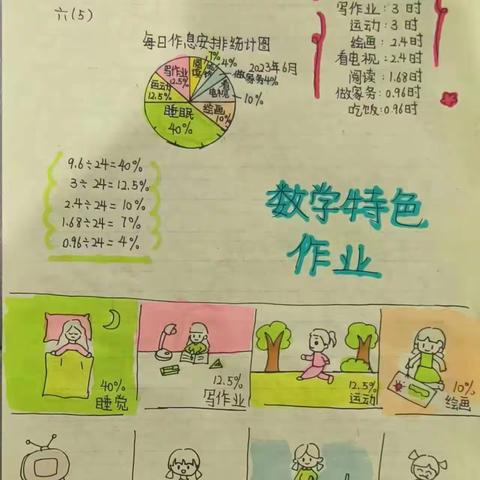 六(5)
每日作息安排统计图
2023年6月
写作业
12.5%
运动
12.5%
睡眠
40%
绘画
10%
10%
做家务4%
4%
7%
写作业:3时
运动:3时
绘画:2.4时
看电视:2.4时
阅读:1.68时
做家务:0.96时
吃饭:0.96时
9.6÷24=40%
3÷24=12.5%
2.4÷24=10%
1.68÷24=7%
0.96÷24=4%
数学特色
作业
40%
睡觉
12.5%
写作业
12.5%
运动
10%
绘画